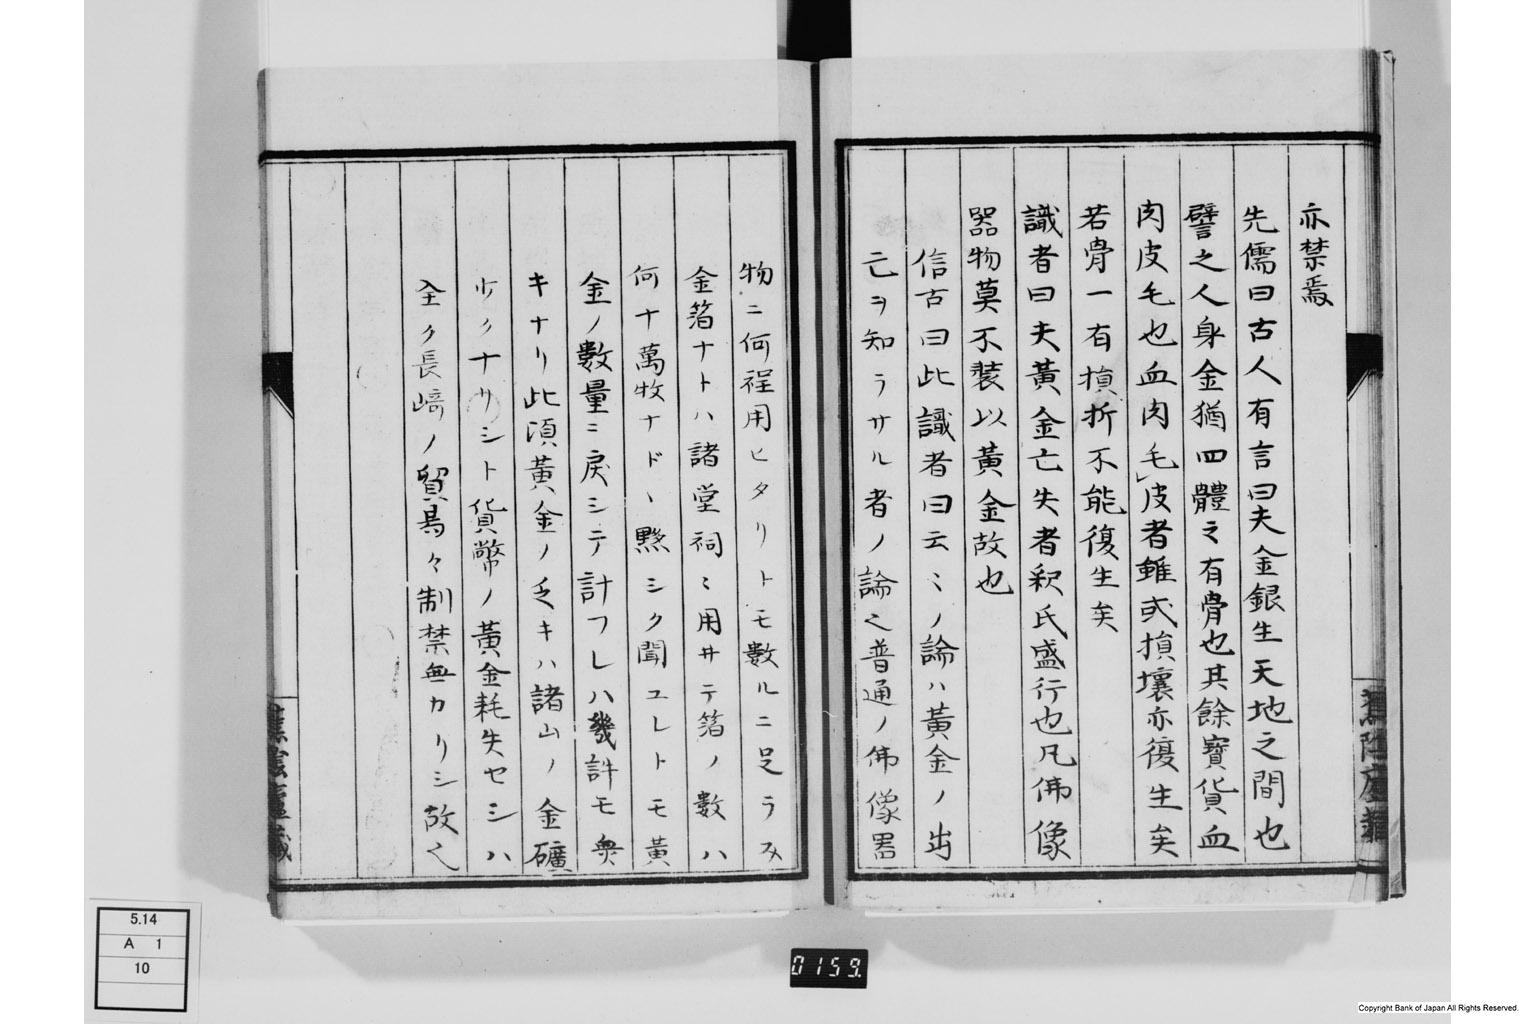 亦禁焉
先儒曰古人有言曰夫金銀生天地之間也
譬之人身金猶四體之有骨也其餘寳貨血
肉皮毛也血肉毛皮者雖或損壞亦復生矣
若骨一有損折不能復生矣
識者曰夫黃金亡失者釈氏盛行也凡佛像
器物莫不裝以黃金故也
信古曰此識者曰云〻ノ論ハ黃金ノ出
亡ヲ知ラサル者ノ論之普通ノ佛像器
物ニ何程用ヒタリトモ數ルニ足ラス
金箔ナトハ諸堂祠〻用井テ箔ノ數ハ
何十萬枚ナドヽ黙シク聞ユレトモ黃
金ノ數量ニ戻シテ計フレハ幾許モ無
キナリ此頃黃金ノ乏キハ諸山ノ金礦
少クナサシト貨幣ノ黃金耗失セシハ
全ク長崎ノ貿易々制禁無カリシ故之
5.14
A 1
10
0159.
Copyright Bank of Japan All Rights Reserved.